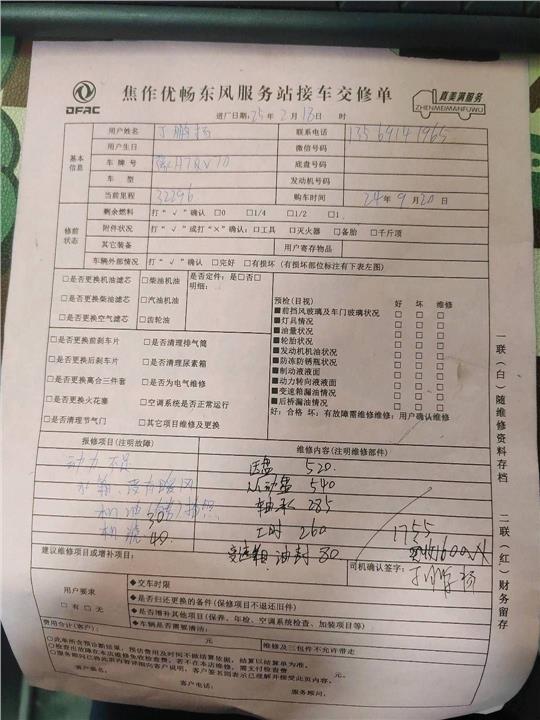 DFAC
焦作优畅东风服务站接车交修单
真美满服务
ZHENMEIMANFUWU
进厂日期:25年2月18日 时
基本信息
用户姓名 丁鹏杨 联系电话 13569141965
用户生日 微信号码
车牌号 底盘号码
车 型 发动机号码
当前里程 32296 购车时间 24年9月20日
修前状态
剩余燃料 打“√”确认 □0 □1/4 □1/2 □1
附件状况 打“√”或打“×”确认:□工具 □灭火器 □备胎 □千斤顶
其它装备 用户寄存物品
车辆外部情况 打“√”确认 □完好 □有损坏(有损坏部位标注有下表左图)
□是否更换机油滤芯 □柴油机油 是否定件:是□否□
明细:
□是否更换柴油滤芯 □汽油机油
□是否更换空气滤芯 □齿轮油
□是否更换前刹车片 □是否清理排气筒
□是否更换后刹车片 □是否清理尿素箱
□是否更换离合三件套 □是否为电气维修
□是否更换火花塞 □空调系统是否正常运行
□是否清理节气门 □其它项目维修及更换
预检(目视) 好 坏 维修
■前挡风玻璃及车门玻璃状况 □ □ □
■灯具情况 □ □ □
■油量状况 □ □ □
■轮胎状况 □ □ □
■发动机机油情况 □ □ □
■防冻防锈瓶状况 □ □ □
■制动液液面 □ □ □
■动力转向液液面 □ □ □
■变速箱漏油情况 □ □ □
■后桥漏油情况 □ □ □
好:合格 坏:有故障需维修维修:用户确认维修
报修项目(注明故障) 维修内容(注明维修部件)
动力不足 压盘 520.
水箱、没有暖风 从动盘 540
轴承 285
30 工时 260 1755
40. 变速箱油封 80 实收1600
建议维修项目或增补项目: 司机确认签字:
丁鹏杨
用户要求
□有 □无
◆交车时限
◆是否归还更换的备件(保修项目不退还旧件)
◆是否增补其他项目(保养、年检、空调系统检查、加装项目等)
◆车辆是否需要清洁:
费用合计(客户): 元 维修及三包件不允许带走
○此单所含预诊断结果,预估费用及时间不做结算依据,结算以结算单为准。
○检查出故障在本店维修免收检查费,若不在本店维修,需支付检查费 元。
○服务顾问已将此页内容详细向客户说明,客户签名即表示已理解并接受此页内容。
客户签名:
客户电话: 服务顾问:
一联(白)随维修资料存档
二联(红)财务留存